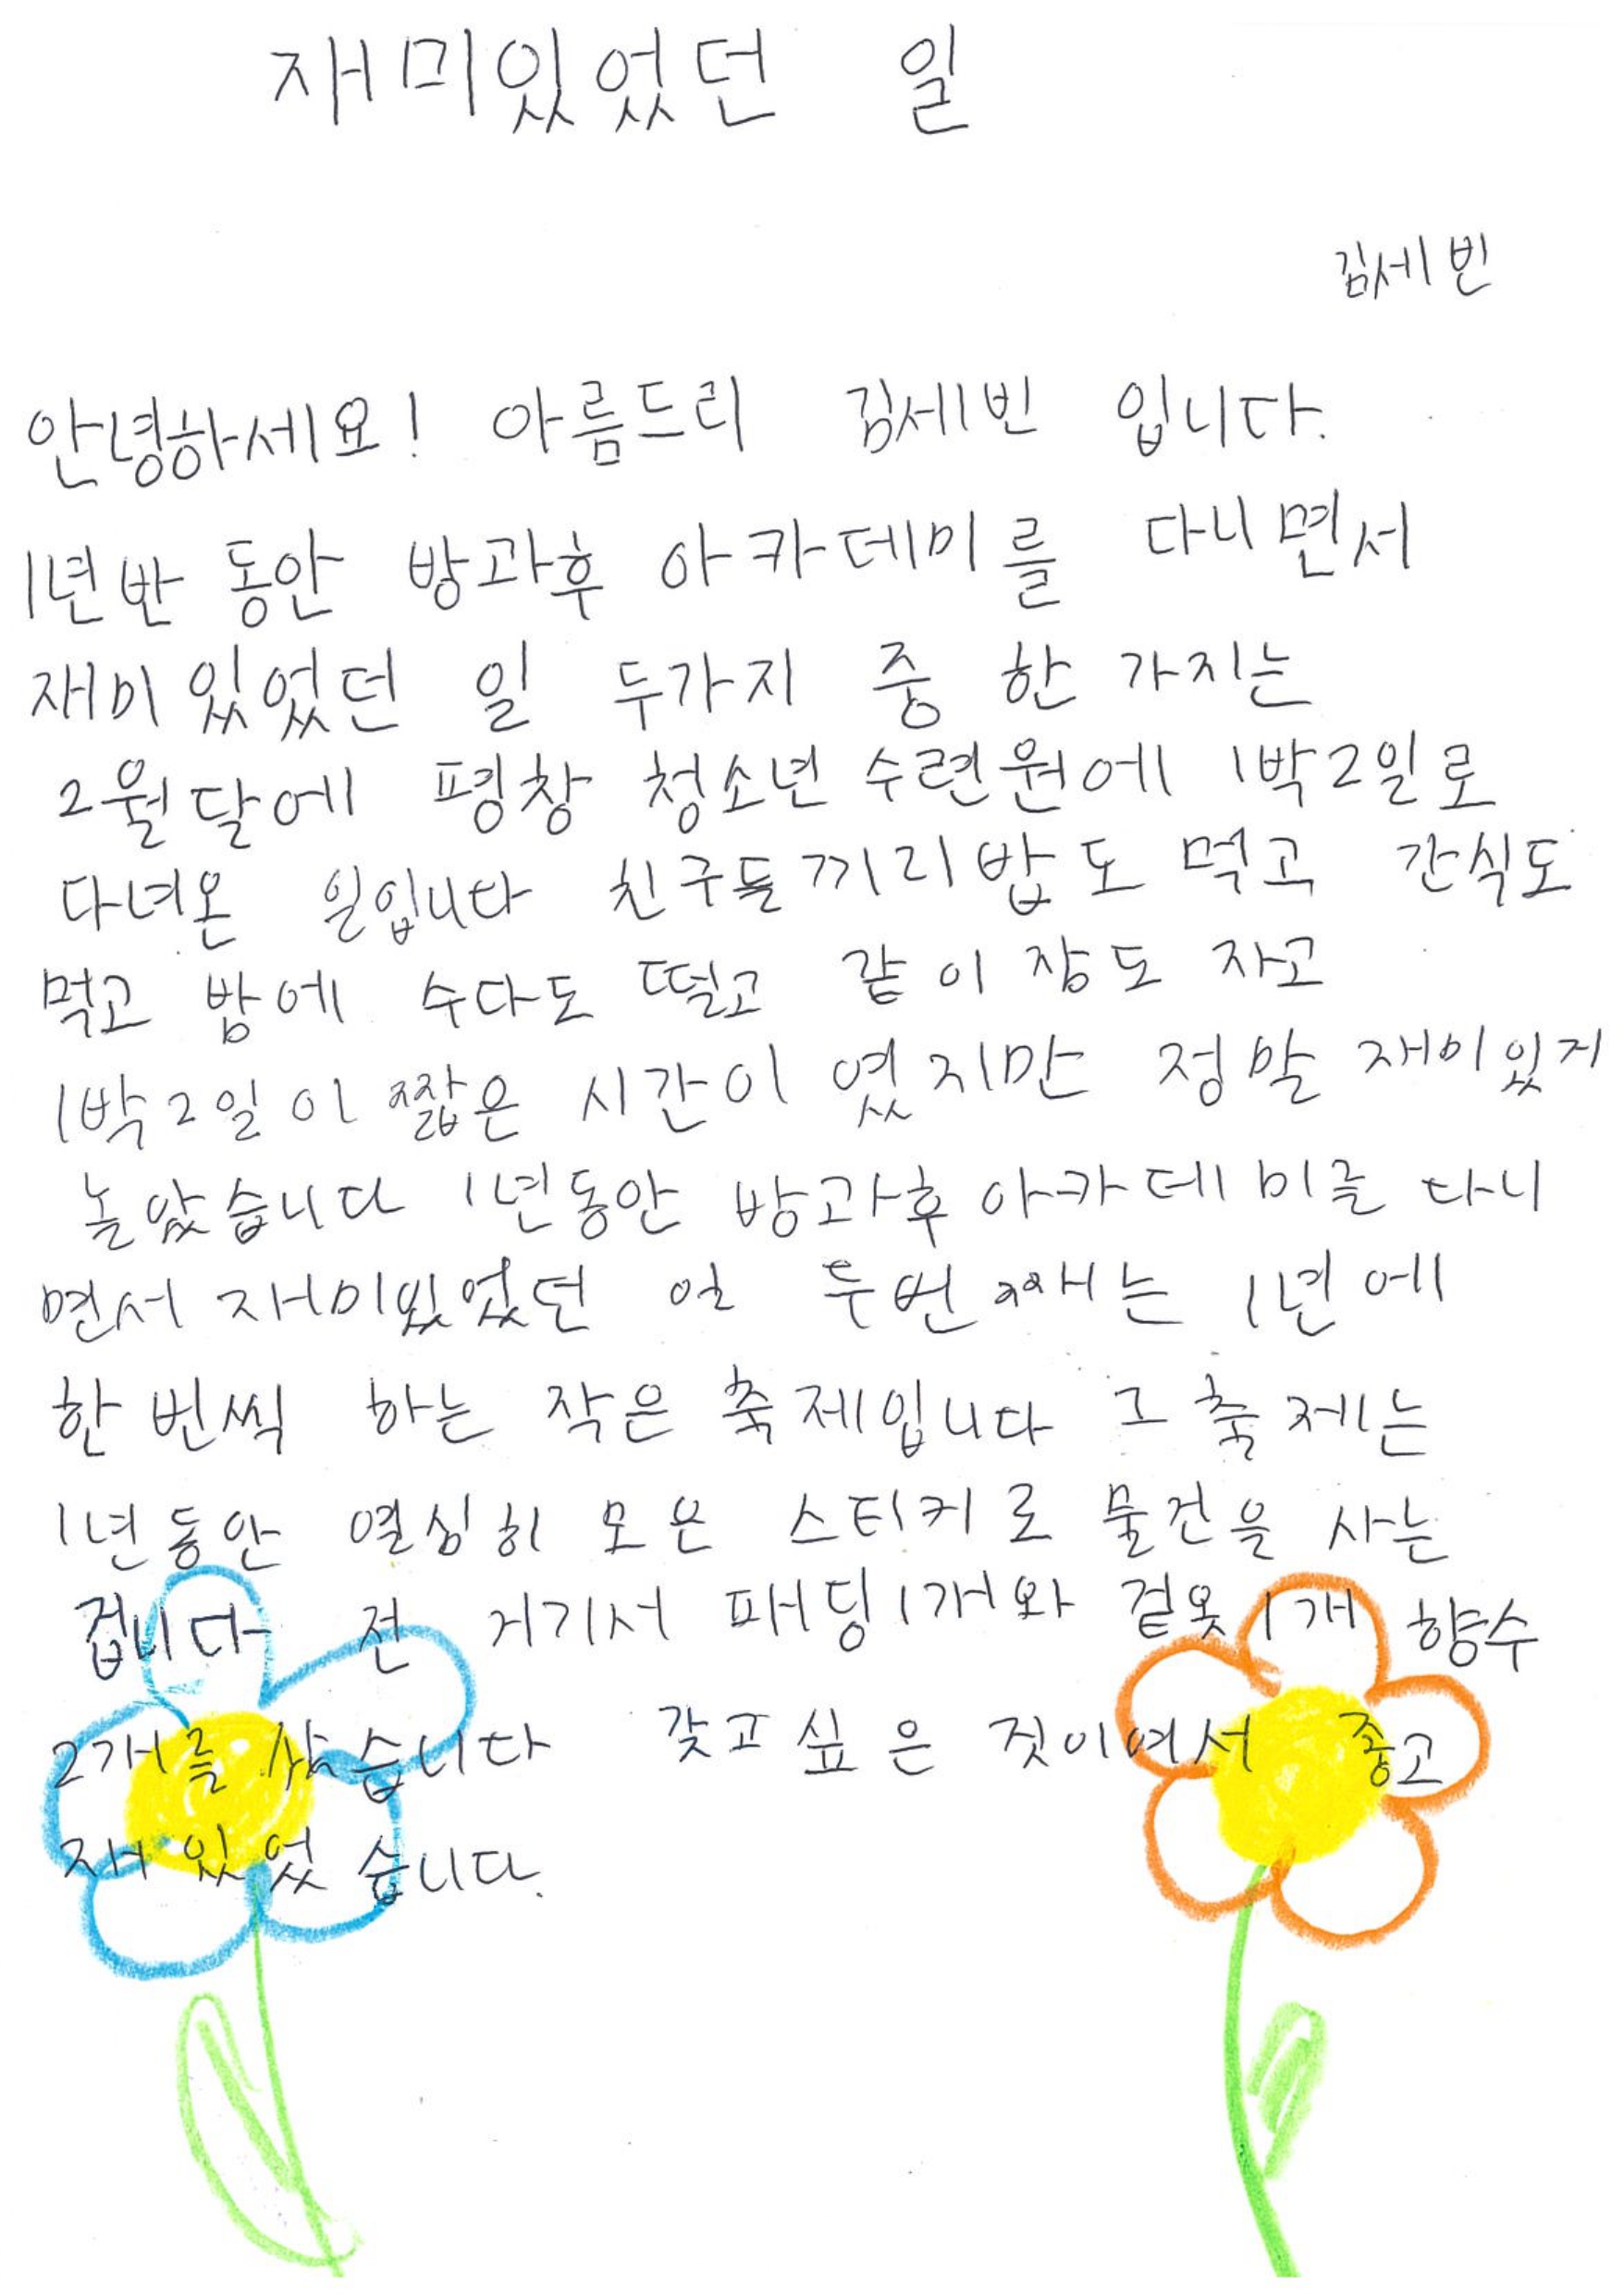 재미있었던 일
김세빈
안녕하세요! 아름드리 김세빈 입니다.
1년반 동안 방과후 아카데미를 다니면서
재미있었던 일 두가지 중 한 가지는
2월달에 평창 청소년 수련원에 1박2일로
다녀온 일입니다 친구들끼리밥도 먹고 간식도
먹고 밤에 수다도 떨고 같이 잠도 자고
1박2일이 짧은 시간이 였지만 정말 재미있게
놀았습니다 1년동안 방과후아카데미를 다니
면서 재미있었던 일 두번째는 1년에
한 번씩 하는 작은 축제입니다 그 축제는
1년동안 열심히 모은 스티커로 물건을 사는
겁니다 전 거기서 패딩1개와 겉옷1개 향수
2개를 샀습니다 갖고싶은 것이여서 좋고
재있었습니다.